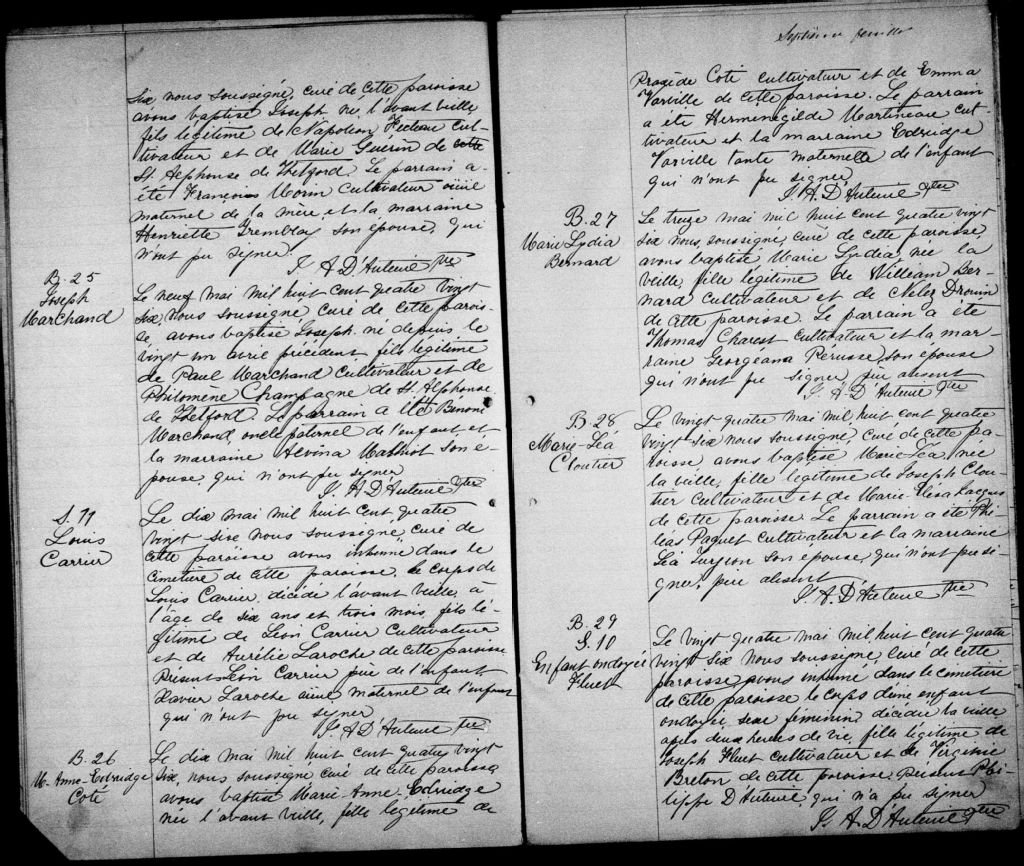 six nous soussigné, curé de cette paroisse
avons baptisé Joseph né l'avant veille,
fils légitime de Napoléon Fecteau cul-
tivateur et de Marie Guérin de cette
St. Alphonse de Thetford. Le parrain a
été François Morin cultivateur
maternel de la mère et la marraine
Henriette Tremblay son épouse, qui
n'ont pu signer.
J. A D'Auteuil Ptre
B. 25
Joseph
Marchand
Le neuf mai mil huit cent quatre vingt
six, nous soussigné curé de cette parois-
se, avons baptisé Joseph né depuis le
vingt un avril précédent fils légitime
de Paul Marchand cultivateur et de
Philomène Champagne de St. Alphonse
de Thetford. Le parrain a été Bénoni
Marchand, oncle paternel de l'enfant, et
la marraine Alvina Mathiot son é-
pouse, qui n'ont pu signer
J. A D'Auteuil Ptre
S.
Louis
Carrier
Le dix mai mil huit cent quatre
vingt sixe nous soussigné, curé de
cette paroisse avons inhumé dans le
cimetière de cette paroisse, le corps de
Louis Carrier, décédé l'avant veille, à
l'âge de six ans et trois mois, fils lé-
gitime de Léon Carrier cultivateur
et de Aurélie Laroche de cette paroisse
Présents Léon Carrier père de l'enfant
Xavier Laroche maternel de l'enfant
qui n'ont pu signer
J. A D'Auteuil Ptre
B. 26
M. Anne-Edridge
Coté
Le dix mai mil huit cent quatre vingt
six, nous soussigné curé de cette paroisse,
avons baptisé Marie-Anne-Edridge
née l'avant veille, fille légitime de
Septième feuillet
Coté cultivateur et de Emma
Varville de cette paroisse. Le parrain
a été Herménégilde Martineau cul-
tivateur et la marraine Edridge
Varville tante maternelle de l'enfant
qui n'ont pu signer
J. A. D'Auteuil Ptre
B. 27
Marie Lydia
Bernard
Le treize mai mil huit cent quatre vingt
six nous, soussigné, curé de cette paroisse,
avons baptisé Marie Lydia, née la
veille, fille légitime de William Ber-
nard cultivateur et de Drouin
de cette paroisse. Le parrain a été
Thomas Charest cultivateur et la mar-
raine Georgéana Perusse, son épouse
qui n'ont pu signer, père absent
J. A D'Auteuil Ptre
B. 28
Marie-Léa
Cloutier
Le vingt quatre mai mil huit cent quatre
vingt six nous soussigné, curé de cette pa-
roisse, avons baptisé Marie-Léa, née
la veille, fille légitime de Joseph Clou-
tier cultivateur et de Marie Jacques
de cette paroisse. Le parrain a été Phi-
leas Paquet cultivateur et la marraine
Léa Turgeon son épouse, qui n'ont pu si-
gner, père absent
J. A. D'Auteuil Ptre
B. 29
S. 10
Enfant ondoyée
Fluet
Le vingt quatre mai mil huit cent quatre
vingt six nous soussigné, curé de cette
paroisse avons inhumé dans le cimetière
de cette paroisse le corps d'une enfant
ondoyée, sexe féminin, décédée la veille
après deux heures de vie, fille légitime de
Joseph Fluet cultivateur et de Virginie
Breton de cette paroisse présent Phi-
lippe D'Auteuil, qui n'a pu signer
J. A. D'Auteuil Ptre